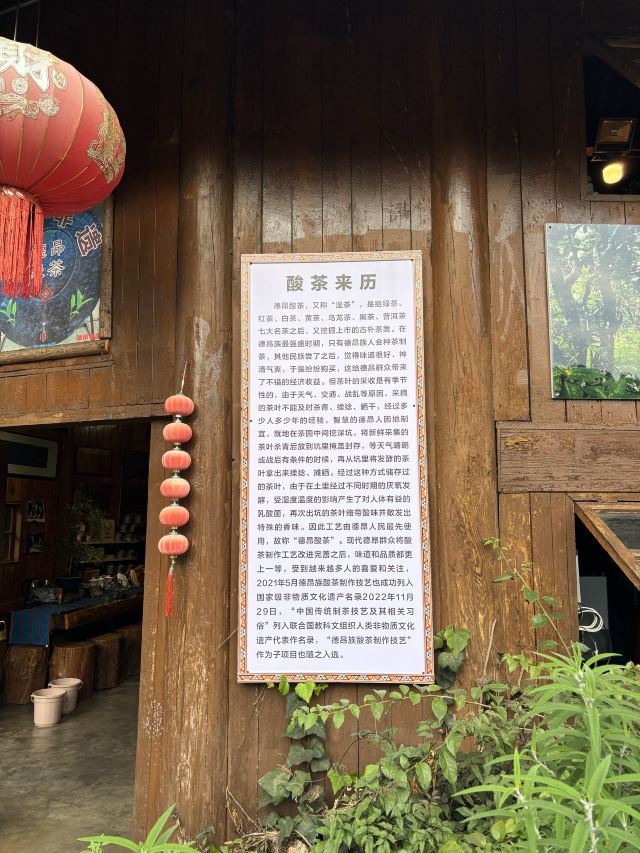 酸茶来历
德昂酸茶，又称“湿茶”，是继绿茶、
红茶、白茶、黄茶、乌龙茶、黑茶、普洱茶
七大名茶之后，又挖掘上市的古朴茶类。在
德昂族最强盛时期，只有德昂族人会种茶制
茶，其他民族尝了之后，觉得味道很好、神
清气爽，于是纷纷购买，这给德昂群众带来
了不错的经济收益，但茶叶的采收是有季节
性的，由于天气、交通、战乱等原因，采摘
的茶叶不能及时杀青、揉捻、晒干，经过多
少人多少年的经验，智慧的德昂人因地制
宜，就地在茶园中间挖深坑，将新鲜采集的
茶叶杀青后放到坑里掩盖封存，等天气晴朗
或战后有条件的时候，再从坑里将发酵的茶
叶拿出来揉捻、摊晒。经过这种方式储存过
的茶叶，由于在土里经过不同时期的厌氧发
酵，受湿度温度的影响产生了对人体有益的
乳酸菌，再次出坑的茶叶略带酸味并散发出
特殊的香味。因此工艺由德昂人民最先使
用，故称“德昂酸茶”。现代德昂群众将酸
茶制作工艺改进完善之后，味道和品质都更
上一等，受到越来越多人的喜爱和关注，
2021年5月德昂族酸茶制作技艺也成功列入
国家级非物质文化遗产名录2022年11月
29日，“中国传统制茶技艺及其相关习
俗”列入联合国教科文组织人类非物质文化
遗产代表作名录，“德昂族酸茶制作技艺”
作为子项目也随之入选。
昂
茶